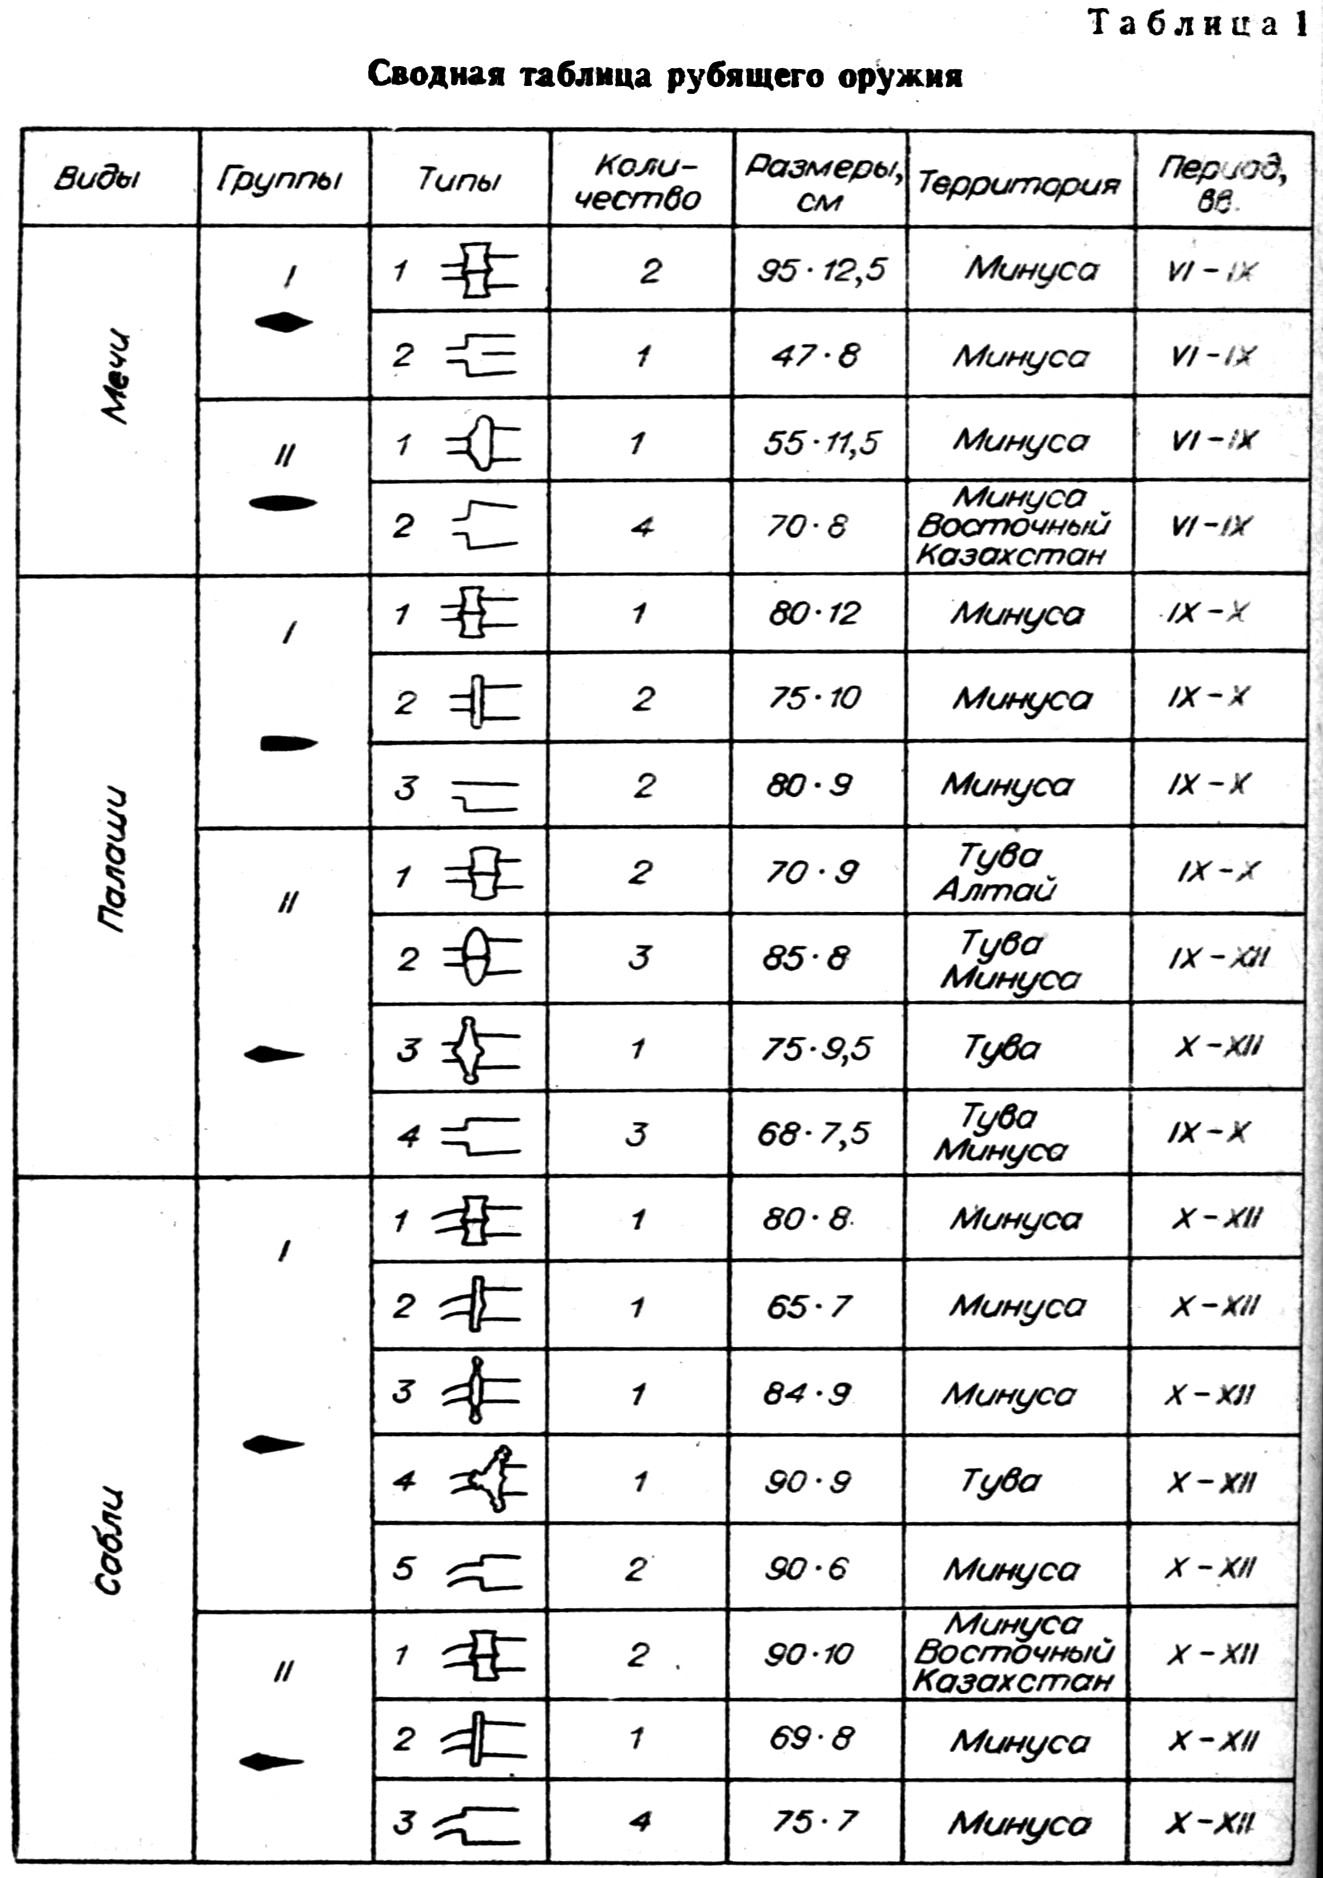 Таблица 1
Сводная таблица рубящего оружия
Виды Группы Типы Коли-чество Размеры, см Территория Период, вв.
Мечи I 1 2 95·12,5 Минуса VI-IX
2 1 47·8 Минуса VI-IX
II 1 1 55·11,5 Минуса VI-IX
2 4 70·8 Минуса Восточный Казахстан VI-IX
Палаши I 1 1 80·12 Минуса IX-X
2 2 75·10 Минуса IX-X
3 2 80·9 Минуса IX-X
II 1 2 70·9 Тува Алтай IX-X
2 3 85·8 Тува Минуса IX-XII
3 1 75·9,5 Тува X-XII
4 3 68·7,5 Тува Минуса IX-X
Сабли I 1 1 80·8 Минуса X-XII
2 1 65·7 Минуса X-XII
3 1 84·9 Минуса X-XII
4 1 90·9 Тува X-XII
5 2 90·6 Минуса X-XII
II 1 2 90·10 Минуса Восточный Казахстан X-XII
2 1 69·8 Минуса X-XII
3 4 75·7 Минуса X-XII